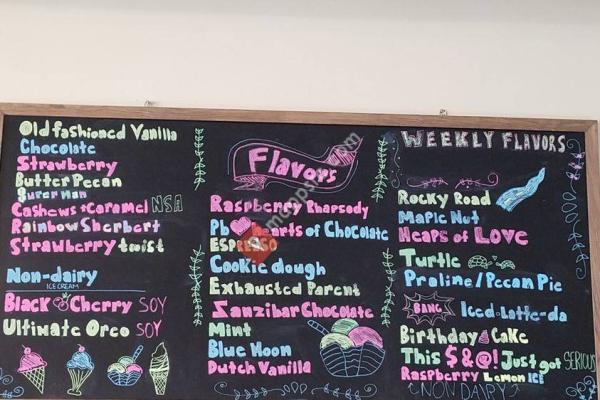 Old fashioned Vanilla
Chocolate
Strawberry
Butter Pecan
Super Man
Cashews + Caramel NSA
Rainbow Sherbert
Strawberry twist
Non-dairy
ICE CREAM
Black Cherry SOY
Ultimate Oreo SOY
Flavors
Raspberry Rhapsody
Pb Hearts of Chocolate
ESPRESSO
Cookie dough
Exhausted Parent
Zanzibar Chocolate
Mint
Blue Moon
Dutch Vanilla
WEEKLY FLAVORS
Rocky Road
Maple Nut
Heaps of Love
Turtle
Praline/Pecan Pie
BANG Iced-Latte-da
Birthday Cake
This $&@! Just got SERIOUS
Raspberry Lemon ICE
(NON DAIRY)